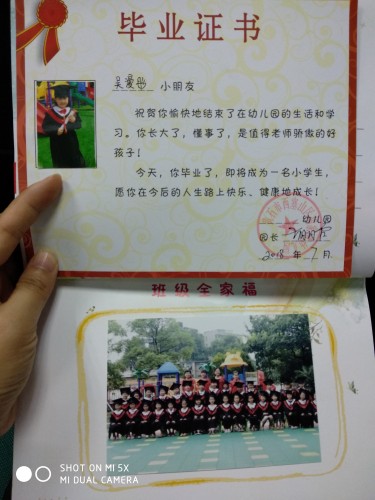 毕业证书
小朋友
祝贺你愉快地结束了在幼儿园的生活和学
习。你长大了，懂事了，是值得老师骄傲的好
孩子！
今天，你毕业了，即将成为一名小学生，
愿你在今后的人生路上快乐、健康地成长！
幼儿园
园长
2018年7月
班级全家福
SHOT ON MI 5X
MI DUAL CAMERA